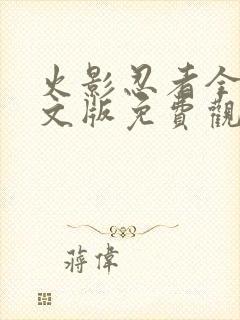 火影忍者全
文版免費觀
蔣偉